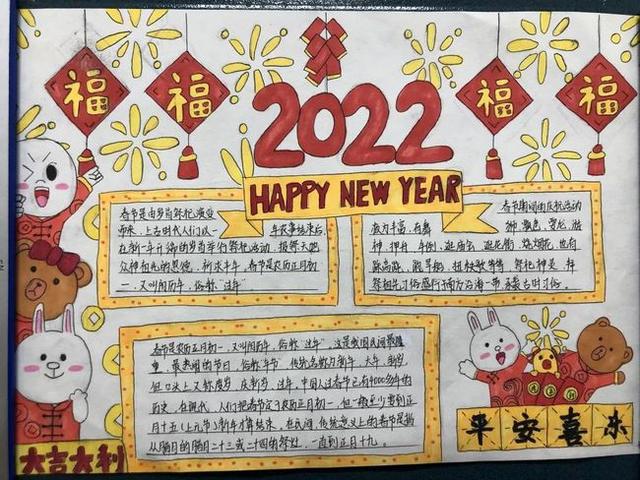 福
福
福
福
2022
HAPPY NEW YEAR
春节是由岁首祈祝演变
而来,上古时代人们以一
年农事结束后
在新一年开端的岁首举行祭祝活动,报答天地
众神和先的恩德,祈求丰年,春节是农历正月初
一,又叫阴历年,俗称"过年"
春节期间的庆祝活动
极为丰富,有舞
狮,飘色,舞龙,游
神,押舟,年例,逛庙会,逛花街,烧烟花,也有
踩高跷,跑旱船,扭秧歌等等,祭祀神灵,拜
春节是农历正月初一,又叫阴历年,俗称"过年",这是我国民间最隆
重,最热闹的节日,俗称"年节",传统名称为新年,大年,新岁
但口头上又称度岁,庆新岁,过年,中国人过春节已有4000多年的
历史,在现代,人们把春节定于农历正月初一,但一般至少要到正
月十五(上元节)新年才算结束,在民间,传统意义上的春节是指
从腊月的腊月二十三或二十四的祭灶,一直到正月十九。
大吉大利
平安喜乐